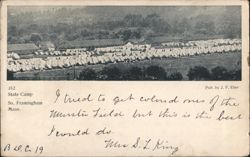 162
State Camp
So. Framingham
Mass.
Pub. by J. F. Eber
I tried to get colored ones of the
Muster Field but this is the best
I could do.
Mrs S. L. King
B.D.C. 19